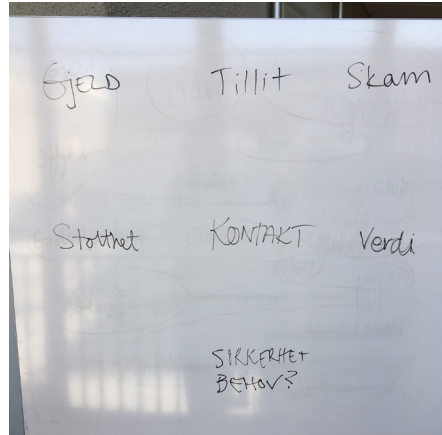 GJELD Tillit Skam
Stolthet KONTAKT Verdi
SIKKERHET
BEHOV?